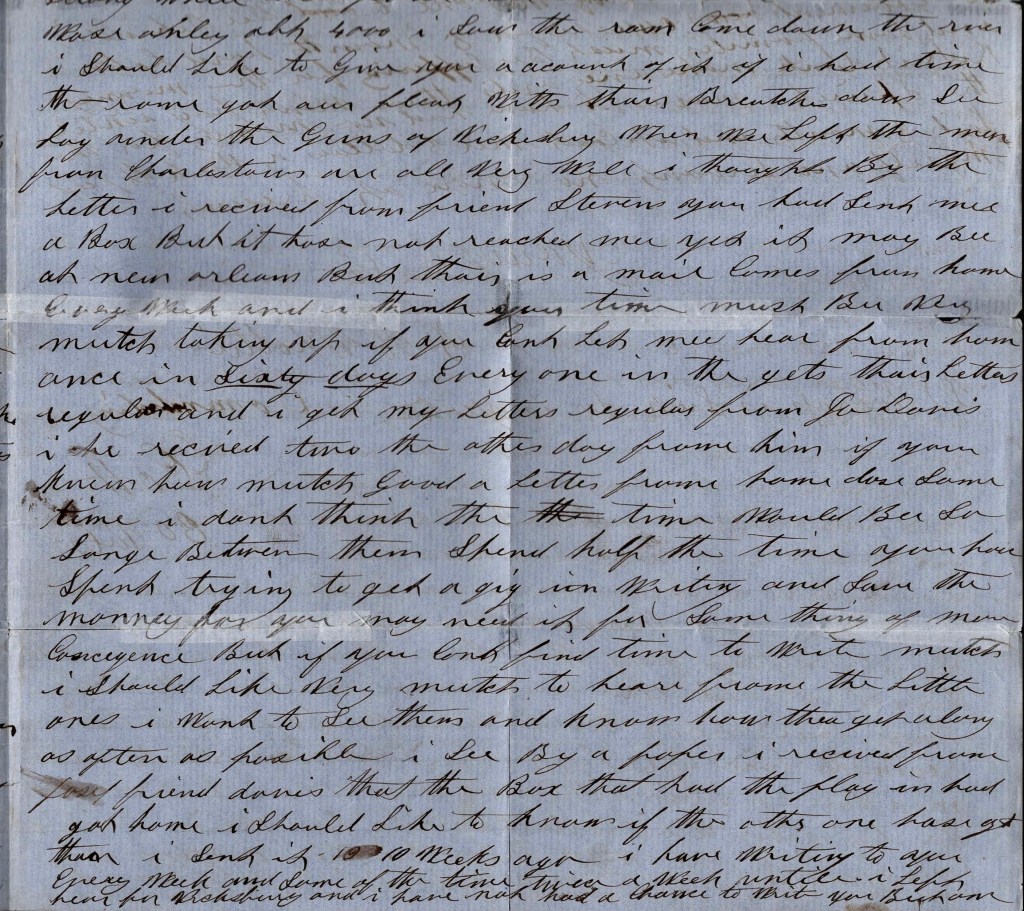 Mose ashley abt 4000 i Saw the ram Come down the river
i Should Like to Give you a acount of it if i had time
the rame got our fleat With thair Breatches down See
Lay under the Guns of Vicksburg When Wee Left the men
from Charlestown are all Very Well i thought By the
Letter i recived from friend Stevens you had Sent mee
a Box But it hase not reached mee yet it may Bee
at new orleans But thair is a mail Comes from home
Every Week and i think your time must Bee Very
mutch taking up if you Cant Let mee hear from hom
once in Sixty days Every one in the gets thair Letters
regular and i get my Letters regular from Jo Davis
i re recived two the other day frome him if you
Knew how mutch Good a Letter frome home dose Some
time i dont think the time Would Bee So
Longe Between them Spend half the time you have
Spent trying to get a gig in Writing and Save the
monney for you may need it for Some thing of more
Conceqence But if you Cant find time to Write mutch
i Should Like Very mutch to heare frome the Little
ones i Want to See them and know how thea get along
as often as posible i See By a paper i recived frome
friend davis that the Box that had the flag in had
got home i Should Like to know if the othr one hase got
thair i Sent it 10 Weeks ago i have Writing to you
Every Week and Some of the time twice a Week untill i Left
hear for Vicksburg and i have not had a chance to Writ you But one